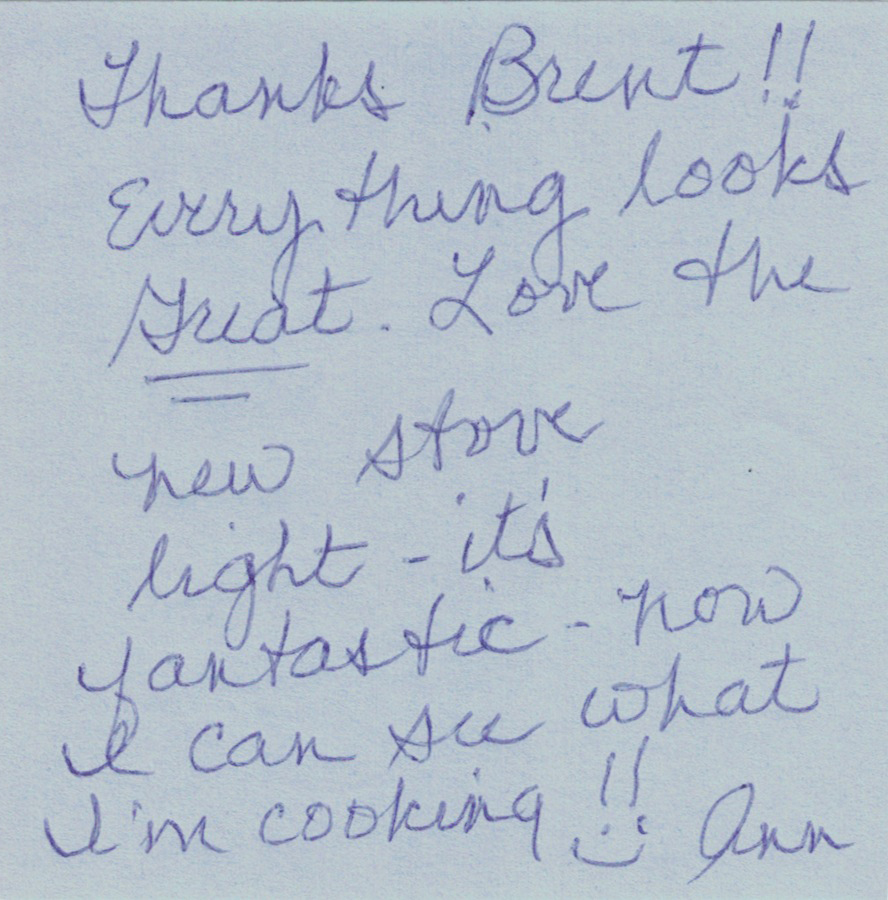 Thanks Brent!!
Everything looks
Great. Love the
new stove
light - it's
fantastic - now
I can see what
I'm cooking!! Ann